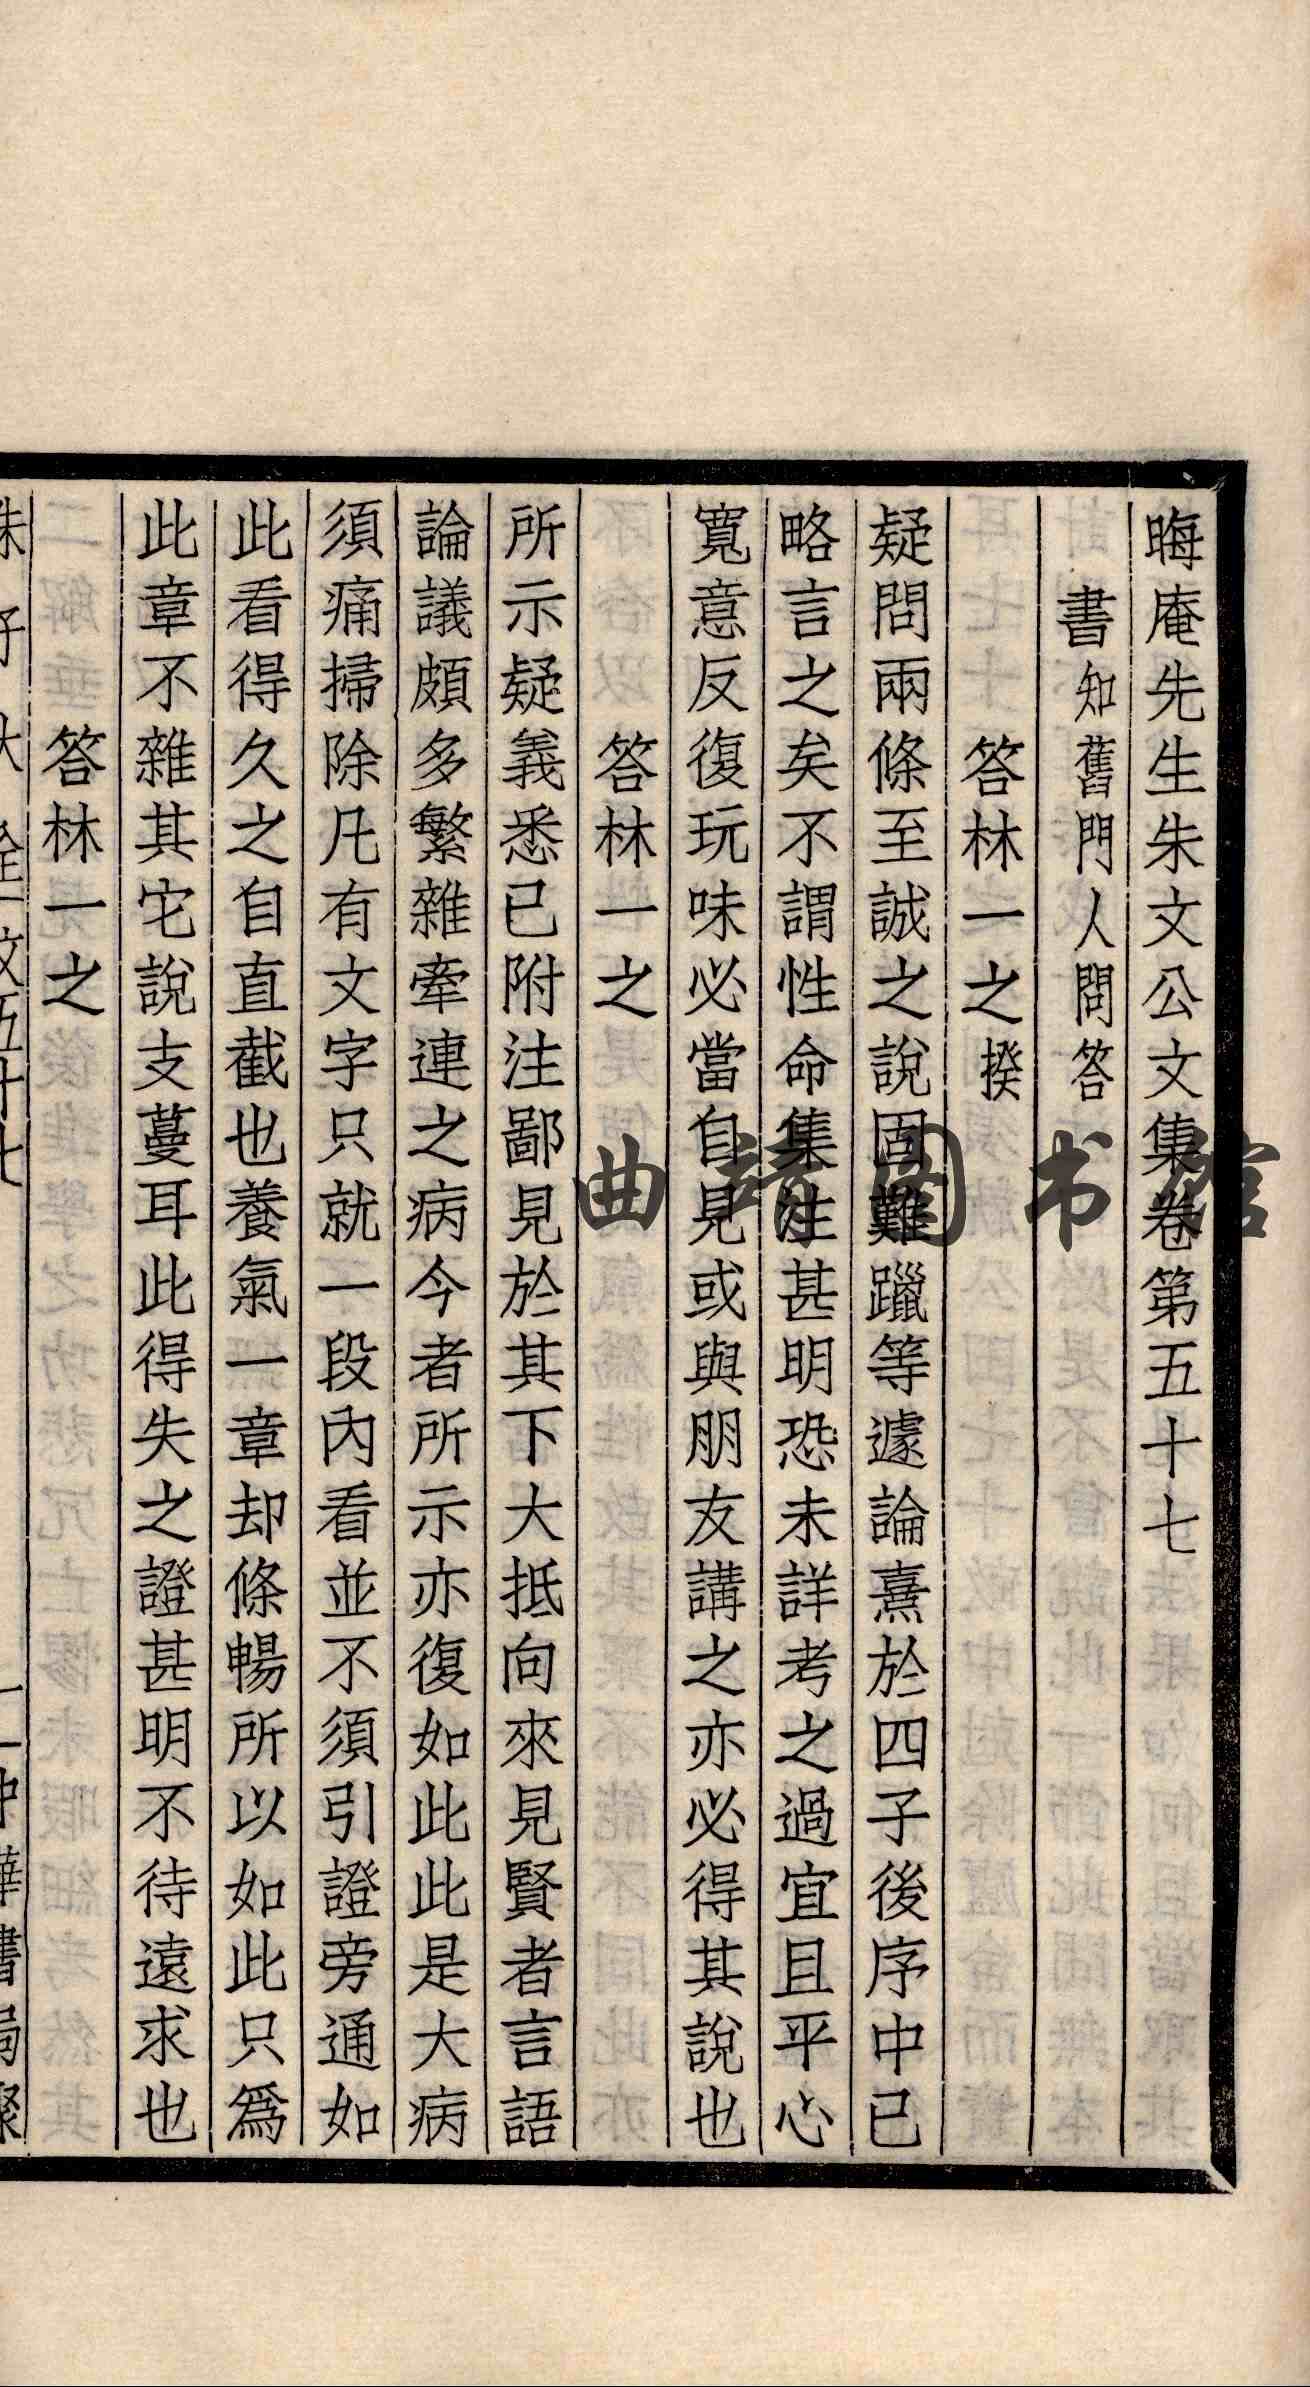 晦庵先生朱文公文集卷第五十七
書知舊門人問答
答林一之揆
疑問兩條至誠之說固難躐等遽論熹於四子後序中已
略言之矣不謂性命集注甚明恐未詳考之過宜且平心
寬意反復玩味必當自見或與朋友講之亦必得其說也
答林一之
所示疑義悉已附注鄙見於其下大抵向來見賢者言語
論議頗多繁雜牽連之病今者所示亦復如此此是大病
須痛掃除凡有文字只就一段內看並不須引證旁通如
此看得久之自直截也養氣一章却條暢所以如此只爲
此章不雜其它說支蔓耳此得失之證甚明不待遠求也
答林一之
曲靖图书馆